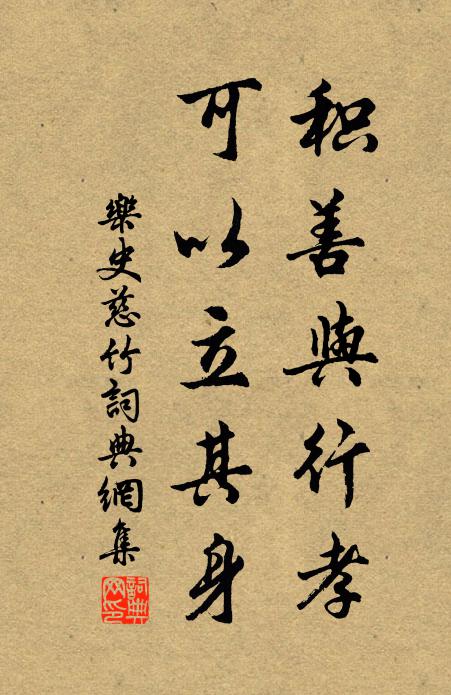 积善與行孝
可以立其身
樂史慈竹詞典網集
詞典网印